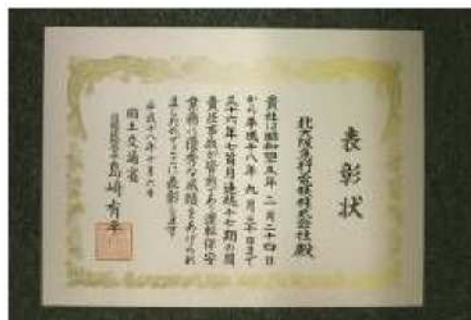 表彰状
北大阪急行電鉄株式会社殿
貴社は昭和四五年二月二十四日
から平成十八年九月三十日まで
三十六年七箇月連続十七期の間
責任事故が皆無であり運転保安
業務に優秀な成績をあげられ
ましたのでここに表彰します
平成十八年十月六日
国土交通省
島崎有平